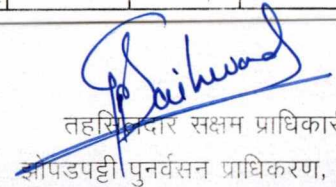 तहसिलदार सक्षम प्राधिकार
झोपडपट्टी पुनर्वसन प्राधिकरण,